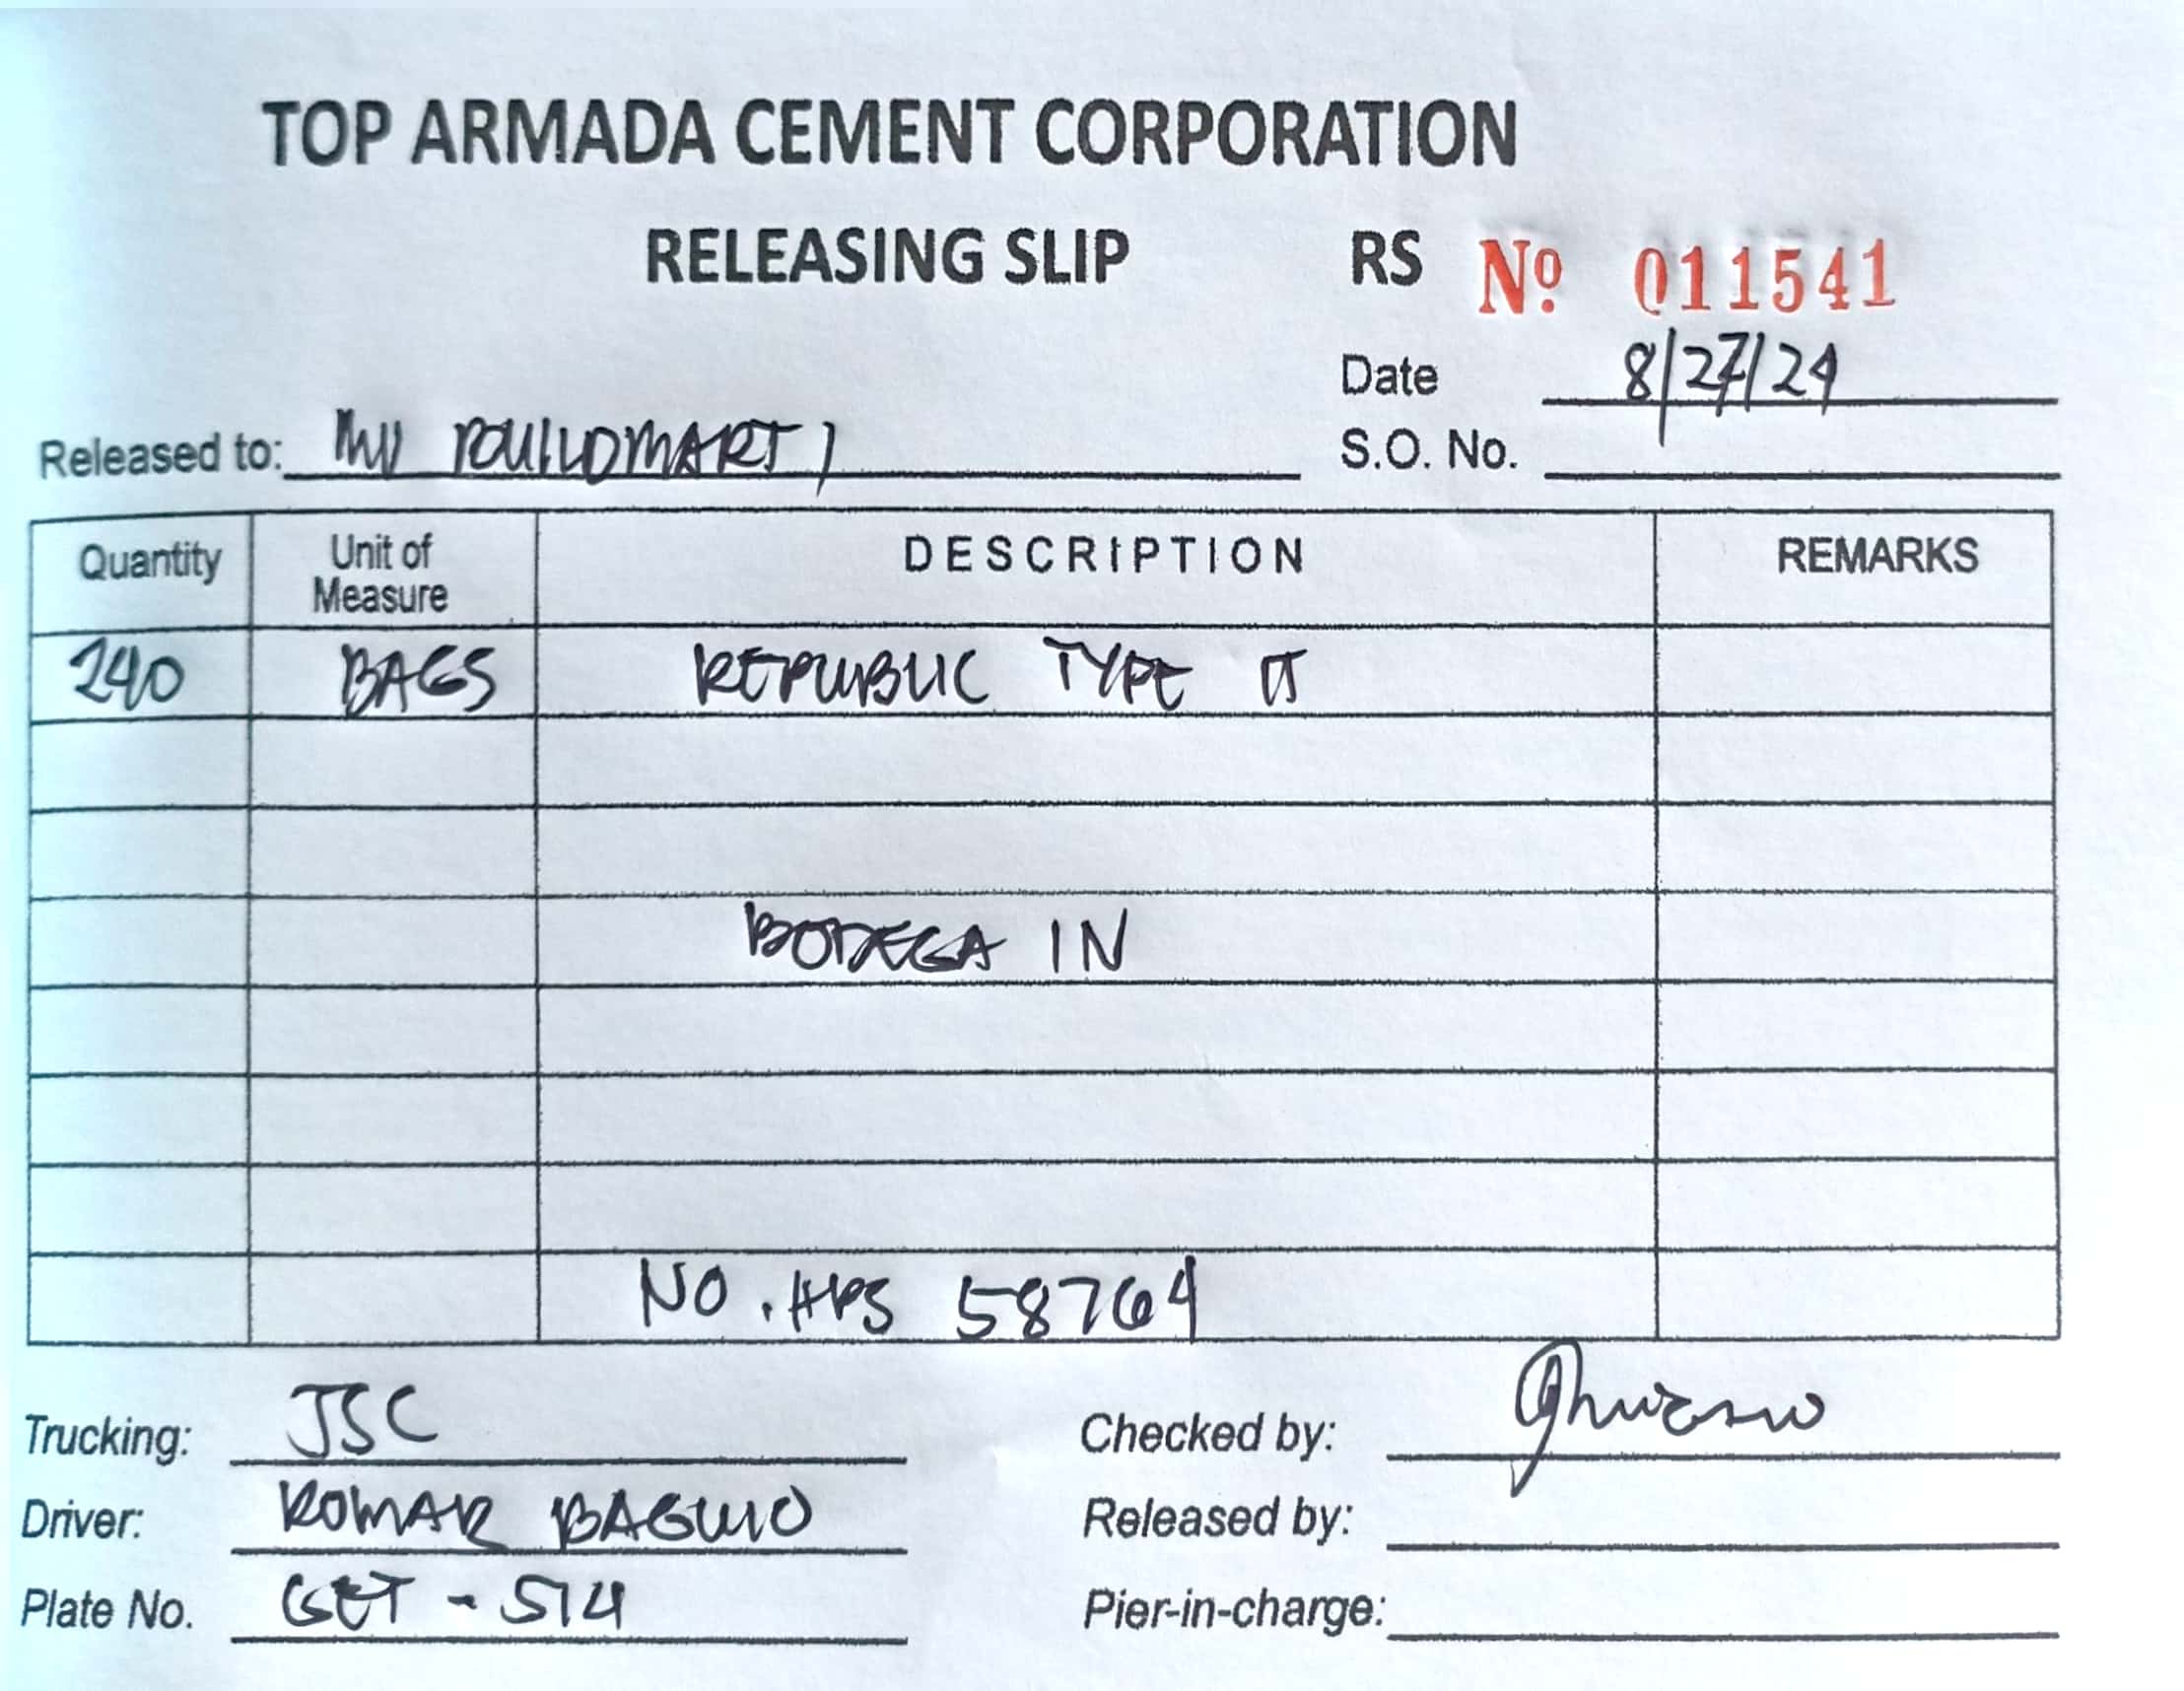 TOP ARMADA CEMENT CORPORATION
RELEASING SLIP RS Nº 011541
Date 8/27/24
Released to: BUILDMART 1
S.O. No.
Quantity Unit of Measure DESCRIPTION REMARKS
240 BAGS REPUBLIC TYPE
BODEGA IN
NO. HPS 58764
Trucking: JSC
Checked by:
Driver: ROMAR BAGUIO
Released by:
Plate No. GET - 514
Pier-in-charge: